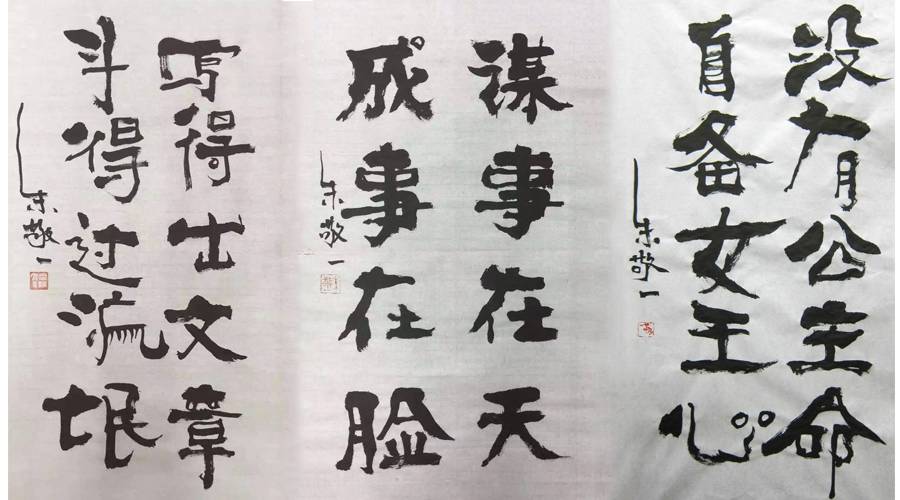 没有公主命
自备女王心
朱敬一
谋事在天
成事在脸
朱敬一
写得出文章
斗得过流氓
朱敬一